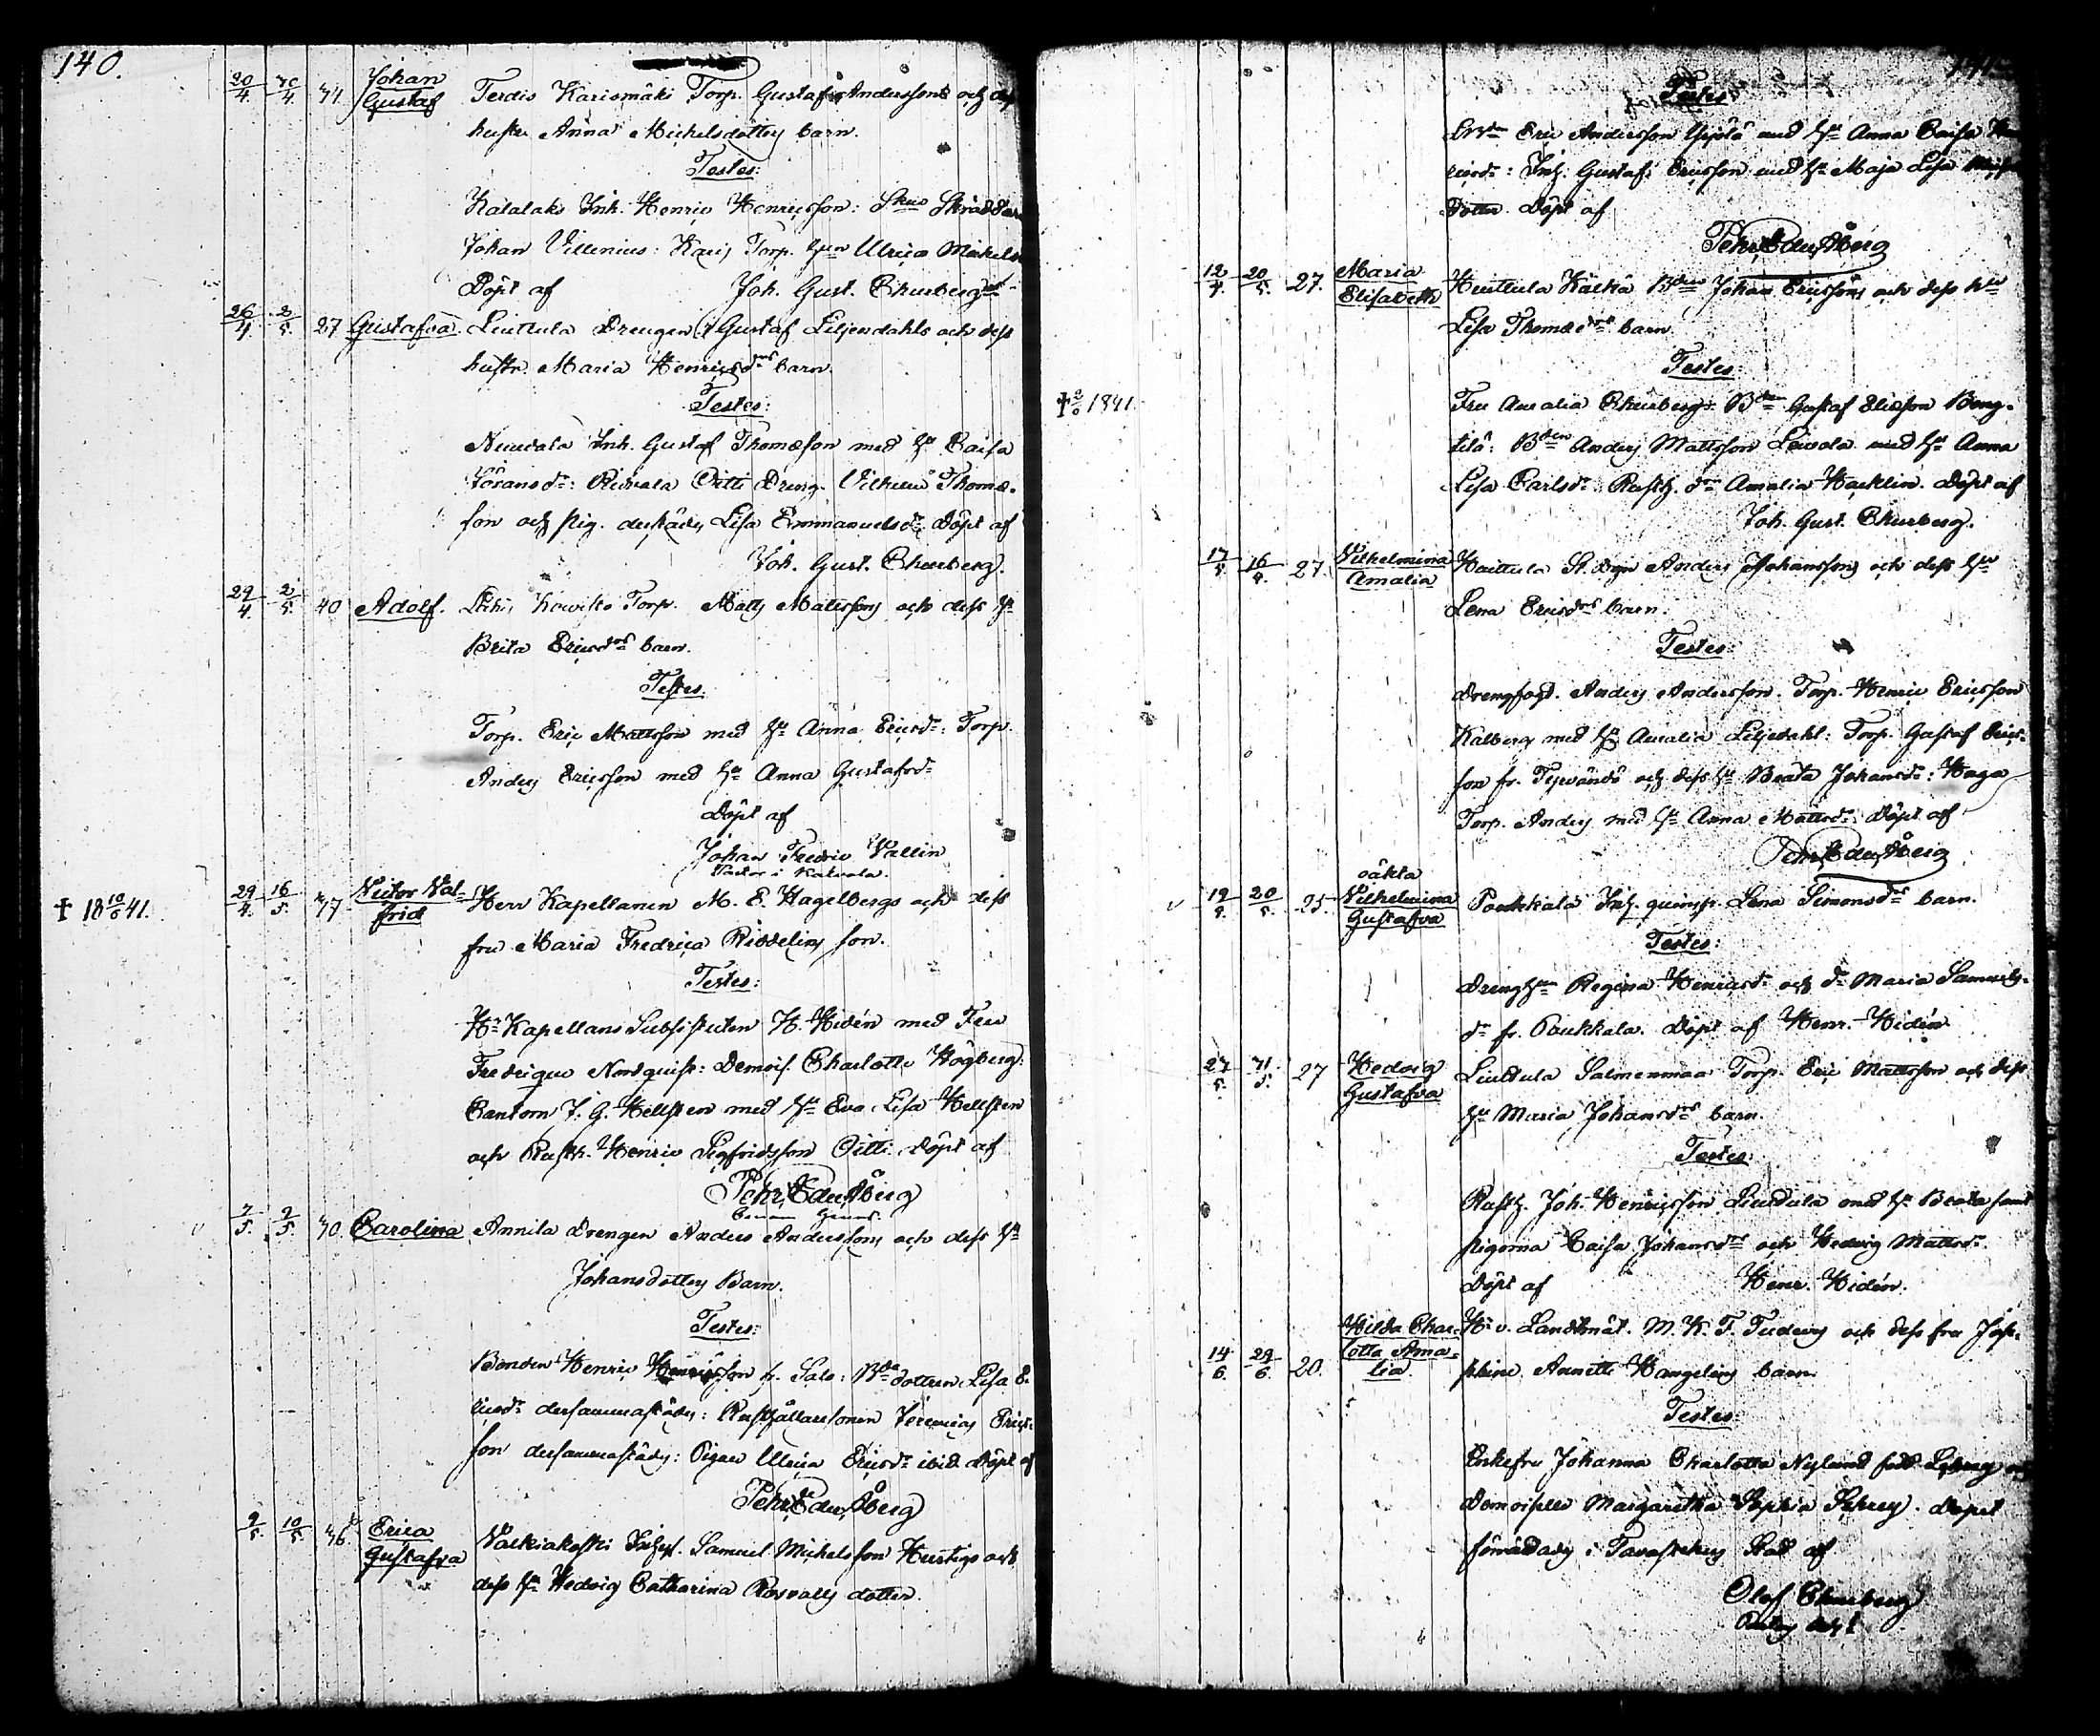 140.
20/4. 30/4. 31. Johan Gustaf Terdis Karismäki Torp. Gustaf Anderssons och dess
hustru Anna Michelsdotters barn.
Testes:
Kalalaks Inh. Henric Henricsson: Skräddare
Johan Villenius: Karis Torp. Ulrica Mickels
Döpt af Joh. Gust. Ekurberg
26/4. 2/5. 27 Gustafva Liuttula Drengen Gustaf Liljendahls och dess
hustru Maria Henricsdrs barn.
Testes:
Nuutala Inh. Gustaf Thomæson med Hu Caisa
Göransdr: Ritvala Oitti Dreng. Vilhelm Thomæ-
son och pig. derstäds Lisa Emmanuelsdr Döpt af
Joh. Gust. Ekurberg.
29/4. 2/5. 40 Adolf. Torp. Matts Matssons och dess Hu
Brita Ericsdrs barn.
Testes.
Torp. Eric Mattsson med Hu Anna Ericsdr: Torp.
Anders Ericsson med Hu Anna Gustafsdr
Döpt af
Johan Fredric Vallin
Pastor i Kalvola.
† 18 10/6 41. 29/4. 16/5. 37 Victor Val-
frid Herr Kapellanen M. E. Hagelbergs och dess
fru Maria Fredrica Riddelins son.
Testes:
Hr Kapellans Substituten H. Hidén med Fru
Frederique Nordquist: Demois. Charlotte Högberg:
Cantorn J. G. Hellsten med Hu Eva Lisa Hellsten
och Rusth. Henric Sigfridsson Oitti. Döpt af
Pehr Edu. Åberg
7/5. 9/5. 30. Carolina Annila Drengen Anders Anderssons och dess Hu
Johansdotters Barn.
Testes:
Bonden Henric Henricsson fr. Salo: Bdedottern Lisa E-
ricsdr dersammastäds: Rusthållaresonen Jeremias Erics-
son dersammastäds: Pigan Ulrica Ericsdr ibid. Döpt af
Pehr Edu. Åberg
9/5. 10/5. 36. Erica
Gustafva Valkiakoski Inhys. Samuel Michelsson Hurtigs och
dess Hu Hedvig Catharina Rosvalls dotter.
Testes
Eric Andersson med Hu Anna Caisa
ricsdr: Inh: Gustaf Ericsson med Hu Maja Lisa
dotter. Döpt af
Pehr Edu. Åberg
12/4. 20/5. 27. Maria
Elisabeth Huittula Bden Johan Ericssons och dess Hu
Lisa Thomædrs barn.
Testes:
† 1841. Fru Amalia Ekurberg: Bden Gustaf Eliæson Beng-
tilä: Bden Anders Mattsson Leivola med Hu Anna
Lisa Carlsdr. Rusth. dr Amalia Hacklin. Döpt af
Joh. Gust. Ekurberg.
17/5. 16/4. 27. Vilhelmina
Amalia Huittula Anders Johanssons och dess Hu
Lena Ericsdrs barn.
Testes:
Drengfogd. Anders Andersson. Torp. Henric Ericsson
Kalberg med Hu Amalia Liljedahl: Torp. Gustaf Erics-
son fr. Tyrvändö och dess Hu Beata Johansdr: Haga
Torp. Anders med Hu Anna Mattsdr: Döpt af
Pehr Edu. Åberg
oäkta
12/5. 20/5. 25. Vilhelmina
Gustafva Paukkala Inh. qvinsp. Lena Simonsdrs barn.
Testes:
Drenghun Regina Henricsdr och dr Maria Samuels-
dr fr. Paukkala. Döpt af Henr. Hidén.
27/5. 31/5. 27 Hedvig
Gustafva Liuttula Salmenmaa Torp. Eric Mattsson och dess
Hu Maria Johansdrs barn.
Testes:
Rusth. Joh. Henricsson Liuttula med Hu Beata samt
pigorna Caisa Johansdr och Hedvig Mattsdr.
Döpt af Henr. Hidén.
14/6. 29/6. 20. Hilda Char-
lotta Ama-
lia. Hr v. Landtmät. M. K. F. Tudeers och dess fru Jose-
phine Annette Wangelins barn.
Testes:
Enkefru Johanna Charlotta Nylund född
Demoiselle Margaretha Sophia Döpt
i Tavastehus Stad af
Olof Ekurberg